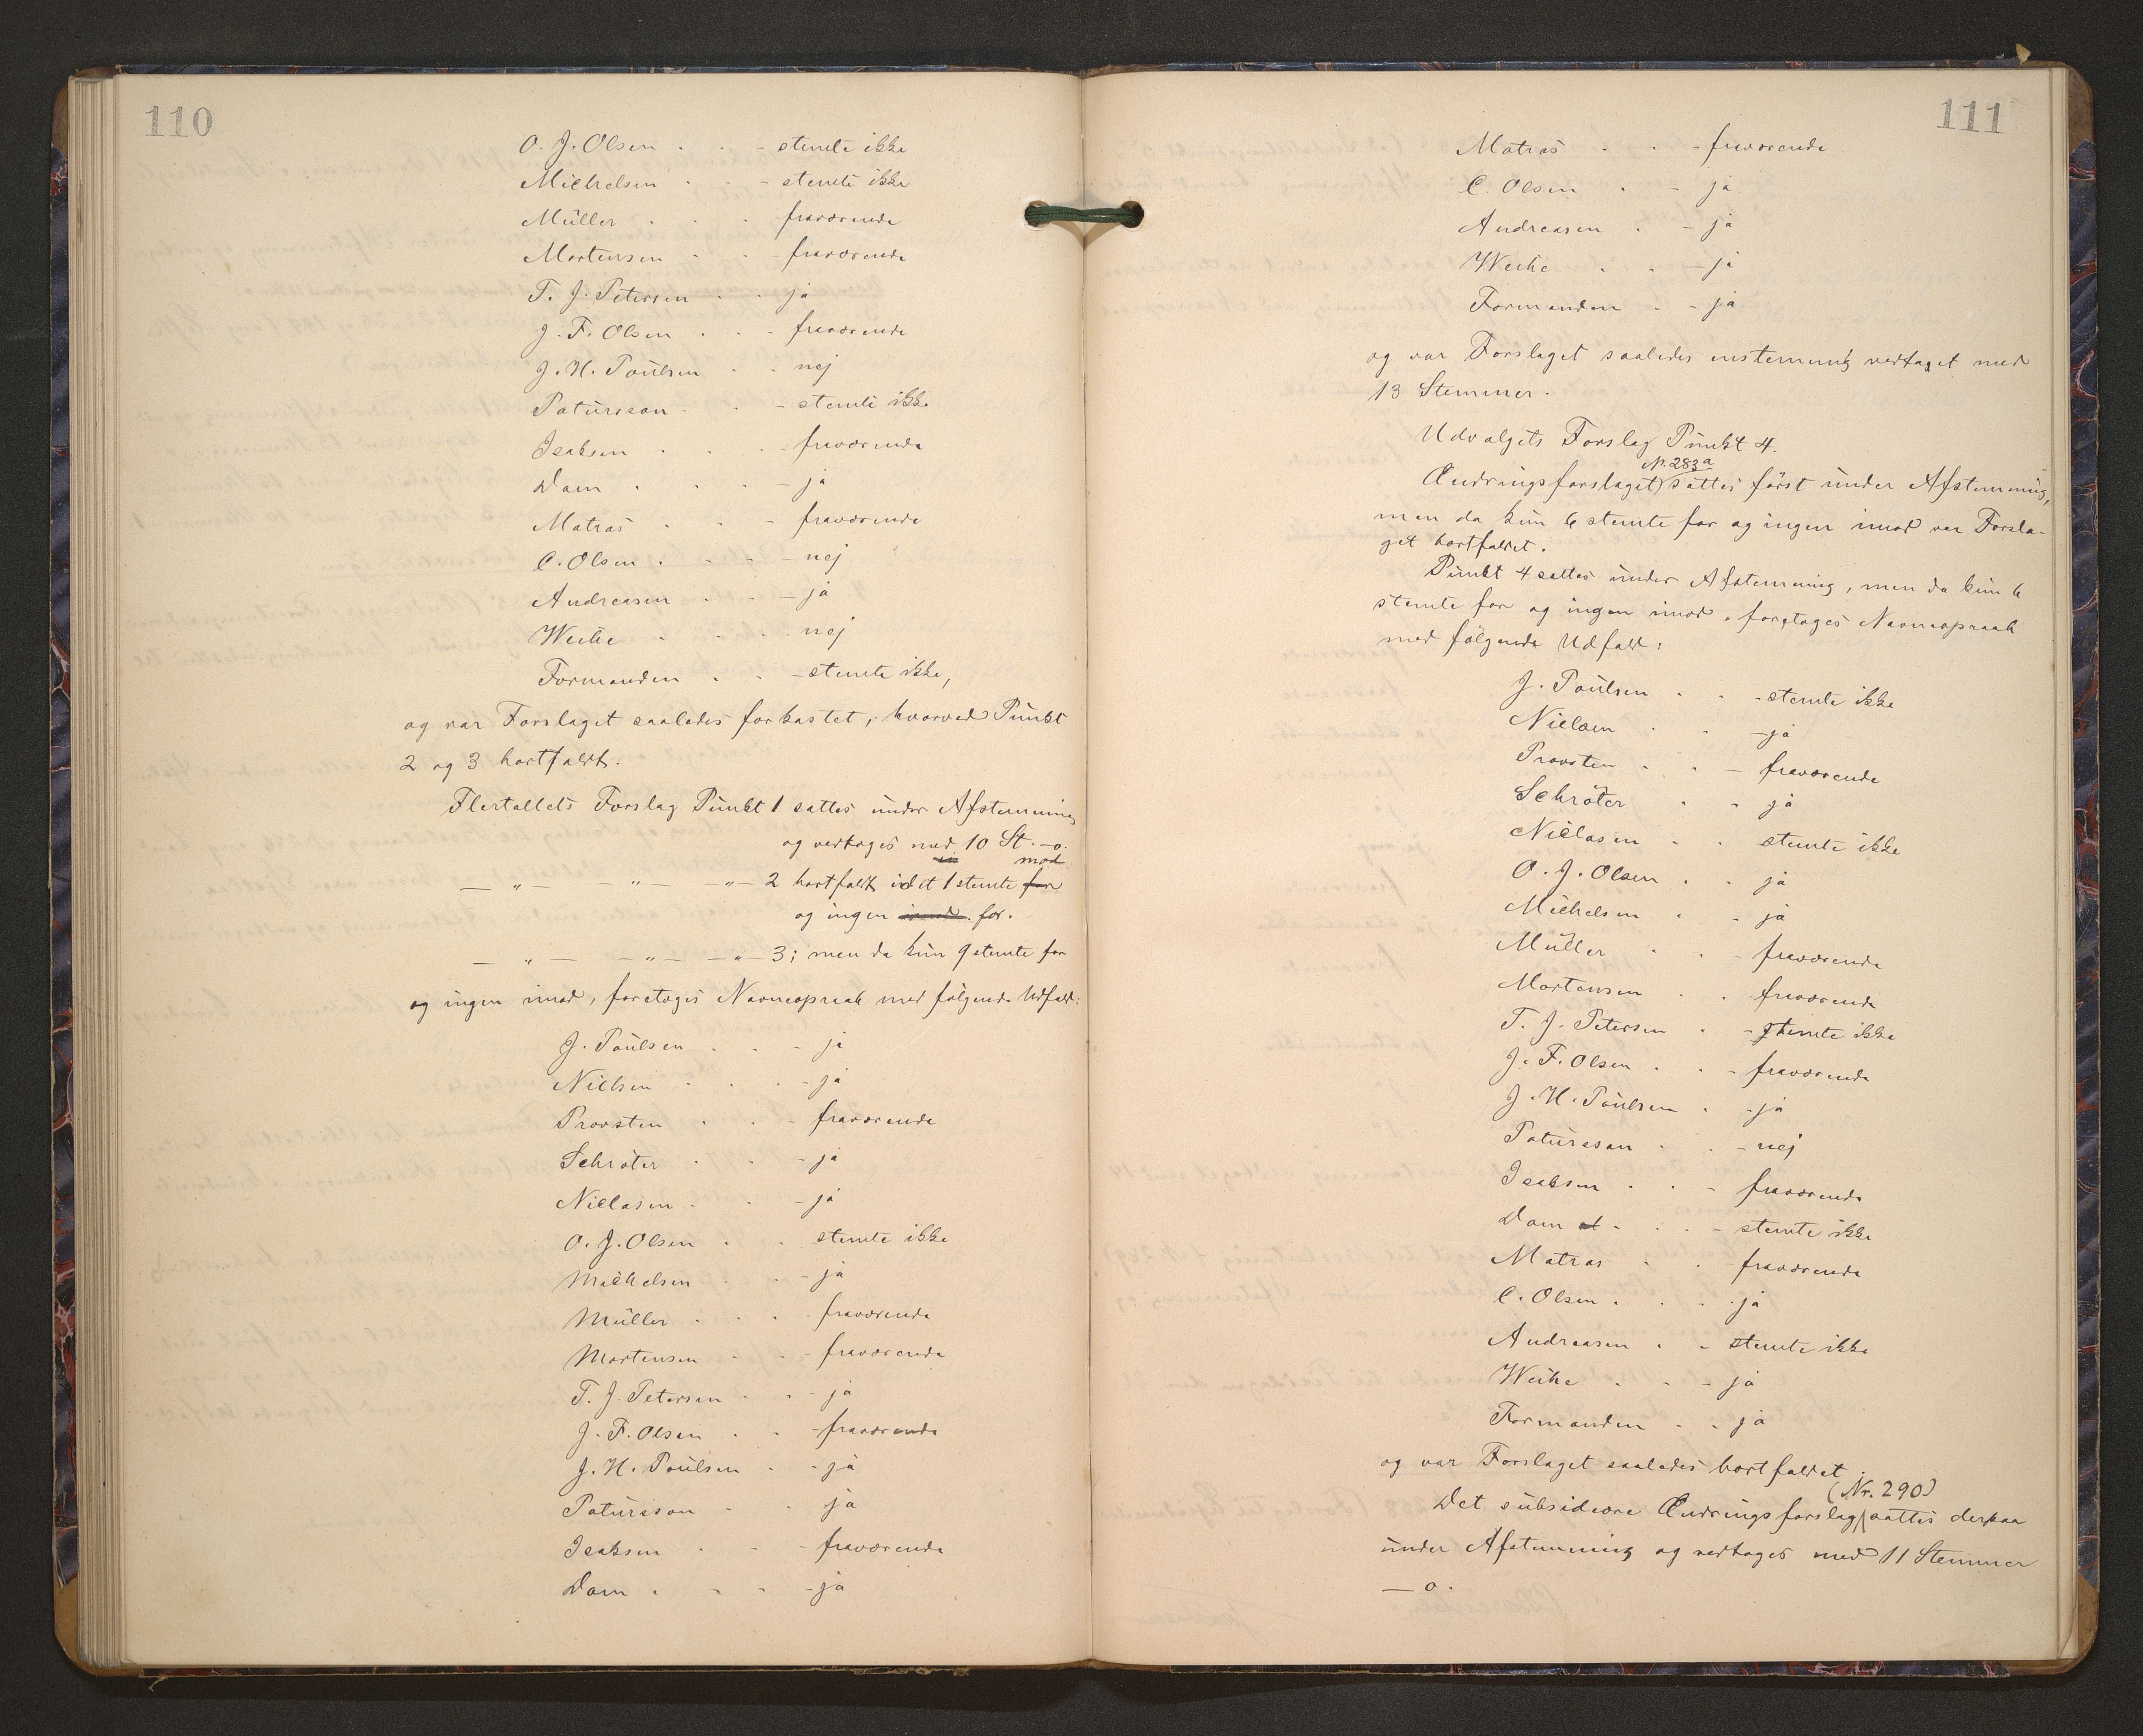 110
O. J. Olsen . . - stemte ikke
Michelsen . . - stemte ikke
Müller . . . fraværende
Mortensen . . fraværende
T. J. Petersen . . ja
J. F. Olsen . . - fraværende
J. H. Poulsen . . nej
Patursson . . - stemte ikke
Isaksen . . . fraværende
Dam . . . - ja
Matras . . - fraværende
C. Olsen . . . - nej
Andreasen . . - ja
Weihe . . . nej
Formanden . . - stemte ikke,
og var Forslaget saaledes forkastet, hvorved Punkt
2 og 3 bortfaldt.
Flertallets Forslag Punkt 1 sattes under Afstemning
og vedtoges med 10 St. - 0.
— " — — " — — " — 2 bortfaldt idet 1 stemte for mod
og ingen imod. for.
— " — — " — — " — 3; men da kun 9 stemte for
og ingen imod, foretoges Navneopraab med følgende Udfald:
J. Poulsen . . - ja
Nielsen . . . - ja
Provsten . . - fraværende
Schrøter . . . - ja
Niclasen . . - ja
O. J. Olsen . . stemte ikke
Michelsen . . - ja
Müller . . . fraværende
Mortensen - - - fraværende
T. J. Petersen . . - ja
J. F. Olsen . . - fraværende
J. H. Poulsen . . - ja
Patursson . . ja
Isaksen . . - fraværende
Dam . . . - ja
111
Matras . . - fraværende
C. Olsen . - ja
Andreasen . - ja
Weihe . . - ja
Formanden . - ja
og var Forslaget saaledes enstemmig vedtaget med
13 Stemmer.
Udvalgets Forslag Punkt 4.
Ændringsforslaget N. 283a sattes først under Afstemning,
men da kun 6 stemte for og ingen imod var Forsla-
get bortfaldet.
Punkt 4 sattes under Afstemning, men da kun 6
stemte for og ingen imod, foretoges Navneopraab
med følgende Udfald:
J. Poulsen . . - stemte ikke
Nielsen . . - ja
Provsten . . - fraværende
Schrøter . - ja
Niclasen . . stemte ikke
O. J. Olsen . . ja
Michelsen . - ja
Müller . . - fraværende
Mortensen . . fraværende
T. J. Petersen . - stemte ikke
J. F. Olsen . . - fraværende
J. H. Poulsen . - ja
Patursson . . - nej
Isaksen . . - fraværende
Dam . . . - stemte ikke
Matras . . - fraværende
C. Olsen . . . - ja
Andreasen . - stemte ikke
Weihe . . - ja
Formanden - - ja
og var Forslaget saaledes bortfaldet.
Det subsidiære Ændringsforslag (Nr. 290) sattes derpaa
under Afstemning og vedtoges med 11 Stemmer
— 0.